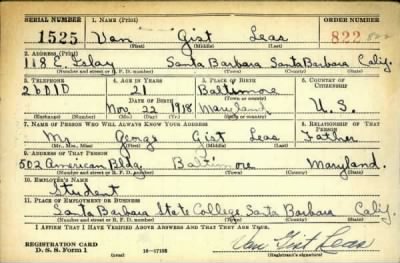 SERIAL NUMBER 1. NAME (Print) ORDER NUMBER
1525 Van Gist Leas 822 822
(First) (Middle) (Last)
2. ADDRESS (Print)
118 E. Islay Santa Barbara Santa Barbara Calif.
(Number and street or R. F. D. number) (Town) (County) (State)
3. TELEPHONE 4. AGE IN YEARS 5. PLACE OF BIRTH 6. COUNTRY OF CITIZENSHIP
26010 21 Baltimore
DATE OF BIRTH (Town or county)
Nov. 22 1918 Maryland U. S.
(Exchange) (Number) (Mo.) (Day) (Yr.) (State or country)
7. NAME OF PERSON WHO WILL ALWAYS KNOW YOUR ADDRESS 8. RELATIONSHIP OF THAT PERSON
Mr. George Gist Leas Father
(Mr., Mrs., Miss) (First) (Middle) (Last)
9. ADDRESS OF THAT PERSON
502 American Bldg. Baltimore Maryland.
(Number and street or R. F. D. number) (Town) (County) (State)
10. EMPLOYER'S NAME
Student
11. PLACE OF EMPLOYMENT OR BUSINESS
Santa Barbara State College Santa Barbara Calif.
(Number and street or R. F. D. number) (Town) (County) (State)
I AFFIRM THAT I HAVE VERIFIED ABOVE ANSWERS AND THAT THEY ARE TRUE.
REGISTRATION CARD
D. S. S. Form 1 16—17105 Van Gist Leas
(Registrant's signature)